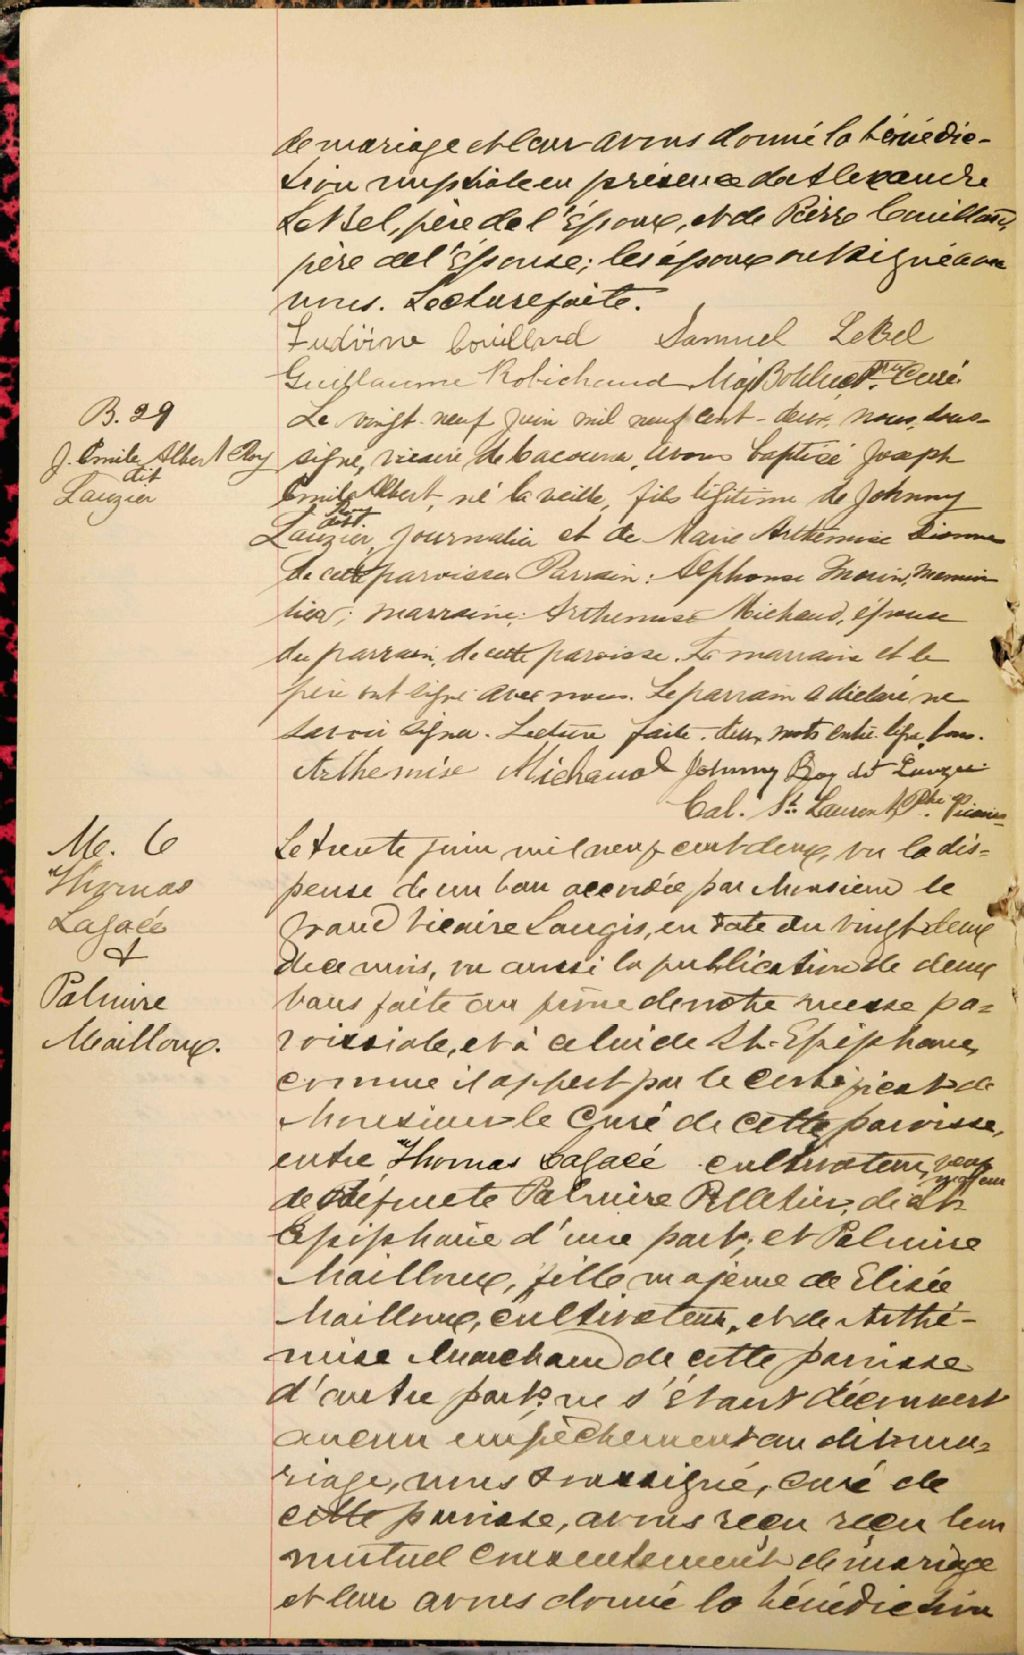 de mariage et leur avons donné la bénédic-
tion nuptiale en présence de Alexandre
LeBel, père de l'Époux, et de Pierre Couillard,
père de l'Épouse; les époux ont signé avec
nous. Lecture faite.
Ludivine Couillard Samuel LeBel
Guillaume Robichaud Ptre Curé.
B. 29
J. Emile Albert Roy
dit
Lauzier
Le vingt-neuf juin mil neuf cent-deux, nous, sous-
signé, vicaire de Cacouna, avons baptisé Joseph
Emile Albert, né la veille, fils légitime de Johnny
Roy dit
Lauzier, journalier et de Marie Arthémise Dionne
de cette paroisse. Parrain: Alphonse Morin, menui-
sier; marraine: Arthemise Michaud, épouse
du parrain, de cette paroisse. La marraine et le
père ont signé avec nous. Le parrain a déclaré ne
savoir signer. Lecture faite. deux mots entre ligne, bons.
Arthemise Michaud Johnny Roy dit Lauzier
Cal. St. Laurent, Ptre. Vicaire
M. 6
Thomas
Lagacé
&
Palmire
Mailloux.
Le trente juin mil neuf cent deux, vu la dis-
pense de un ban accordée par Monsieur le
grand Vicaire Langis, en date du vingt deux
de ce mois, vu aussi la publication de deux
bans faite au prône de notre messe pa-
roissiale, et à celui de St-Epiphane,
comme il appert par le certificat de
Monsieur le Curé de cette paroisse,
entre Thomas Lagacé cultivateur, veuf
majeur
de défunte Palmire Pelletier, de St-
Epiphane d'une part; et Palmire
Mailloux, fille majeure de Elisée
Mailloux, cultivateur, et de Arthé-
mise Marchand de cette paroisse
d'autre part; ne s'étant découvert
aucun empêchement au dit ma-
riage, nous soussigné, curé de
cette paroisse, avons reçu reçu leur
mutuel consentement de mariage
et leur avons donné la bénédiction